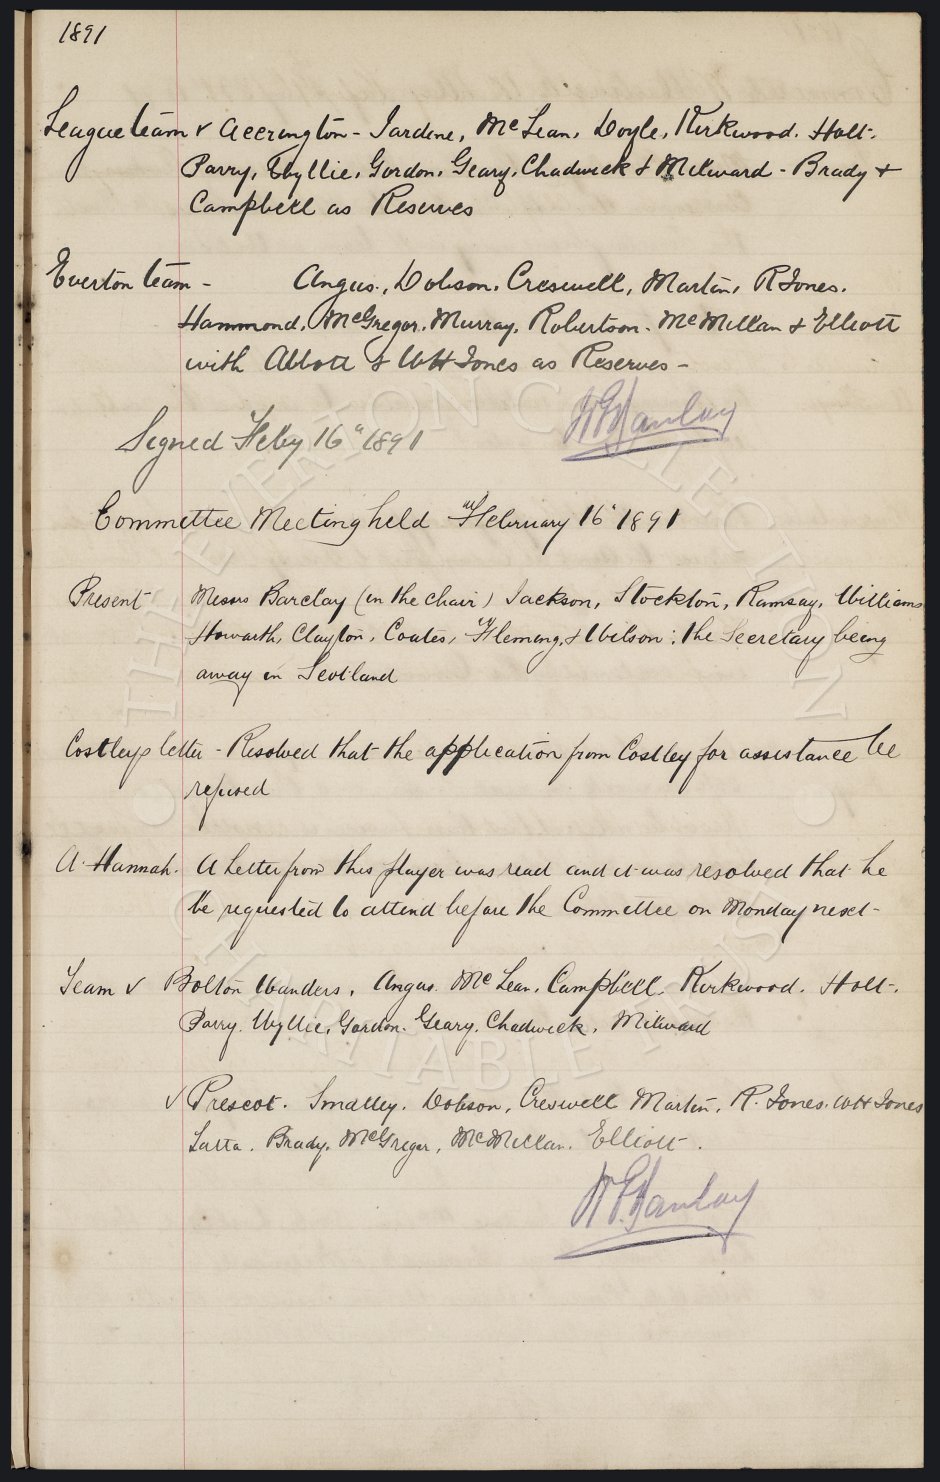 1891
League team v Accrington - Jardine, McLean, Doyle, Kirkwood. Holt.
Parry, Wyllie, Gordon, Geary, Chadwick & Milward - Brady &
Campbell as Reserves
Everton team - Angus, Dobson, Creswell, Martin, R Jones.
Hammond, McGregor, Murray, Robertson. McMillan & Elliott
with Abbott & WH Jones as Reserves -
Signed Feby 16" 1891
Committee Meeting held February 16" 1891
Present Messrs Barclay (in the chair) Jackson, Stockton, Ramsay, Williams
Howarth, Clayton, Coates, Fleming, & Wilson: the Secretary being
away in Scotland
Costleys letter - Resolved that the application from Costley for assistance be
refused
A. Hannah. A letter from this player was read and it was resolved that he
be requested to attend before the Committee on Monday next -
Team v Bolton Wanders, Angus. McLean, Campbell. Kirkwood. Holt.
Parry. Wyllie, Gordon. Geary. Chadwick, Milward
v Prescot. Smalley. Dobson, Creswell Martin, R. Jones. WH Jones
Latta. Brady. McGregor, McMillan. Elliott.
THE EVERTON COLLECTION
CHARITABLE TRUST